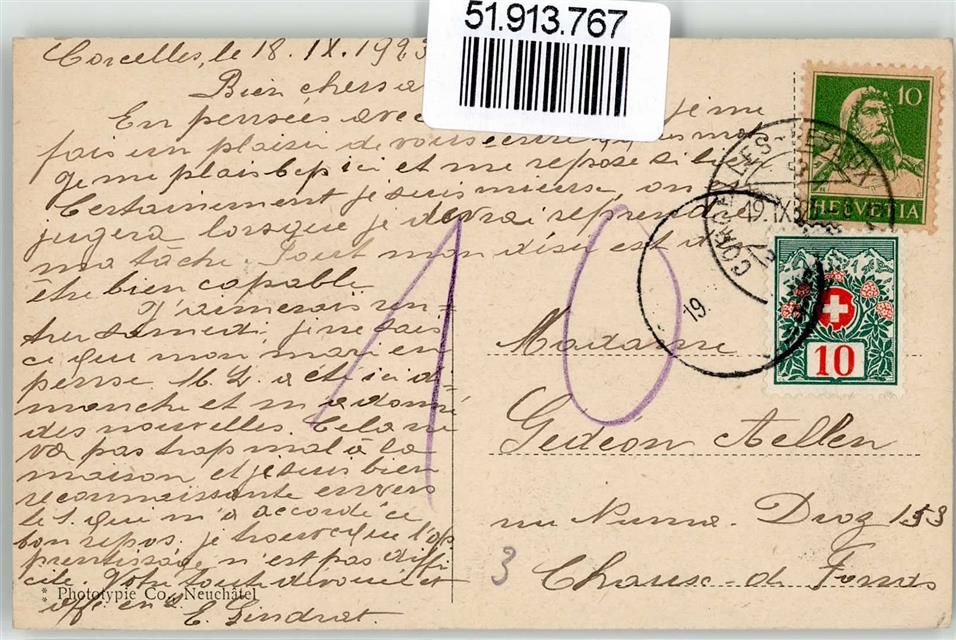 51.913.767
Corcelles, le 18. IX. 1923
Bien chers a
En pensées avec je me
fais un plaisir de vous écrire
Je me plais bep ici et me repose si bien
Certainement je suis mieux, on
jugera lorsque je devrai reprendre
ma tâche. Tout mon désir est d'
être bien capable
J'aimerais ren-
trer samedi, je ne sais
ce que mon mari en
pense M. L. a été ici di-
manche et m'a donné
des nouvelles. Cela ne
va pas trop mal à la
maison et je suis bien
reconnaissante envers
le S. qui m'a accordé ce
bon repos. je trouve que l'ap
prentissage n'est pas diffi
cile. Votre tout dévouée et
aff. en J. E. Gindrat.
* Phototypie Co., Neuchâtel
10
HELVETIA
19. IX 23
10
19.
10
Madame
Gédéon Aellen
rue Numa-Droz 153
3
Chaux-de-Fonds